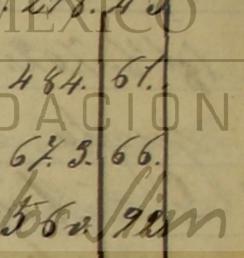 MEXICO
484. 61.
DACION
673. 66.
560. 92
los Slim